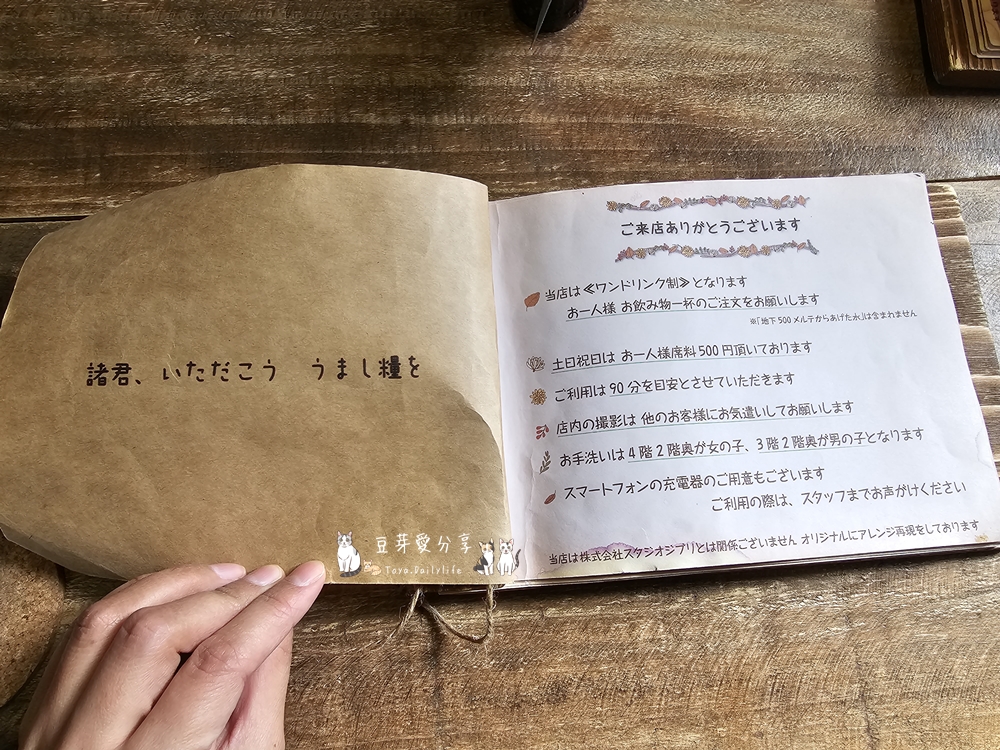 諸君、いただこう　うまし糧を
ご来店ありがとうございます
当店は≪ワンドリンク制≫となります
お一人様 お飲み物一杯のご注文をお願いします
※「地下500メルテからあげた水」は含まれません
土日祝日は お一人様席料500円頂いております
ご利用は90分を目安とさせていただきます
店内の撮影は 他のお客様にお気遣いしてお願いします
お手洗いは4階2階奥が女の子、3階2階奥が男の子となります
スマートフォンの充電器のご用意もございます
ご利用の際は、スタッフまでお声がけください
当店は株式会社スタジオジブリとは関係ございません オリジナルにアレンジ再現をしております
豆芽愛分享
Toya.Dailylife